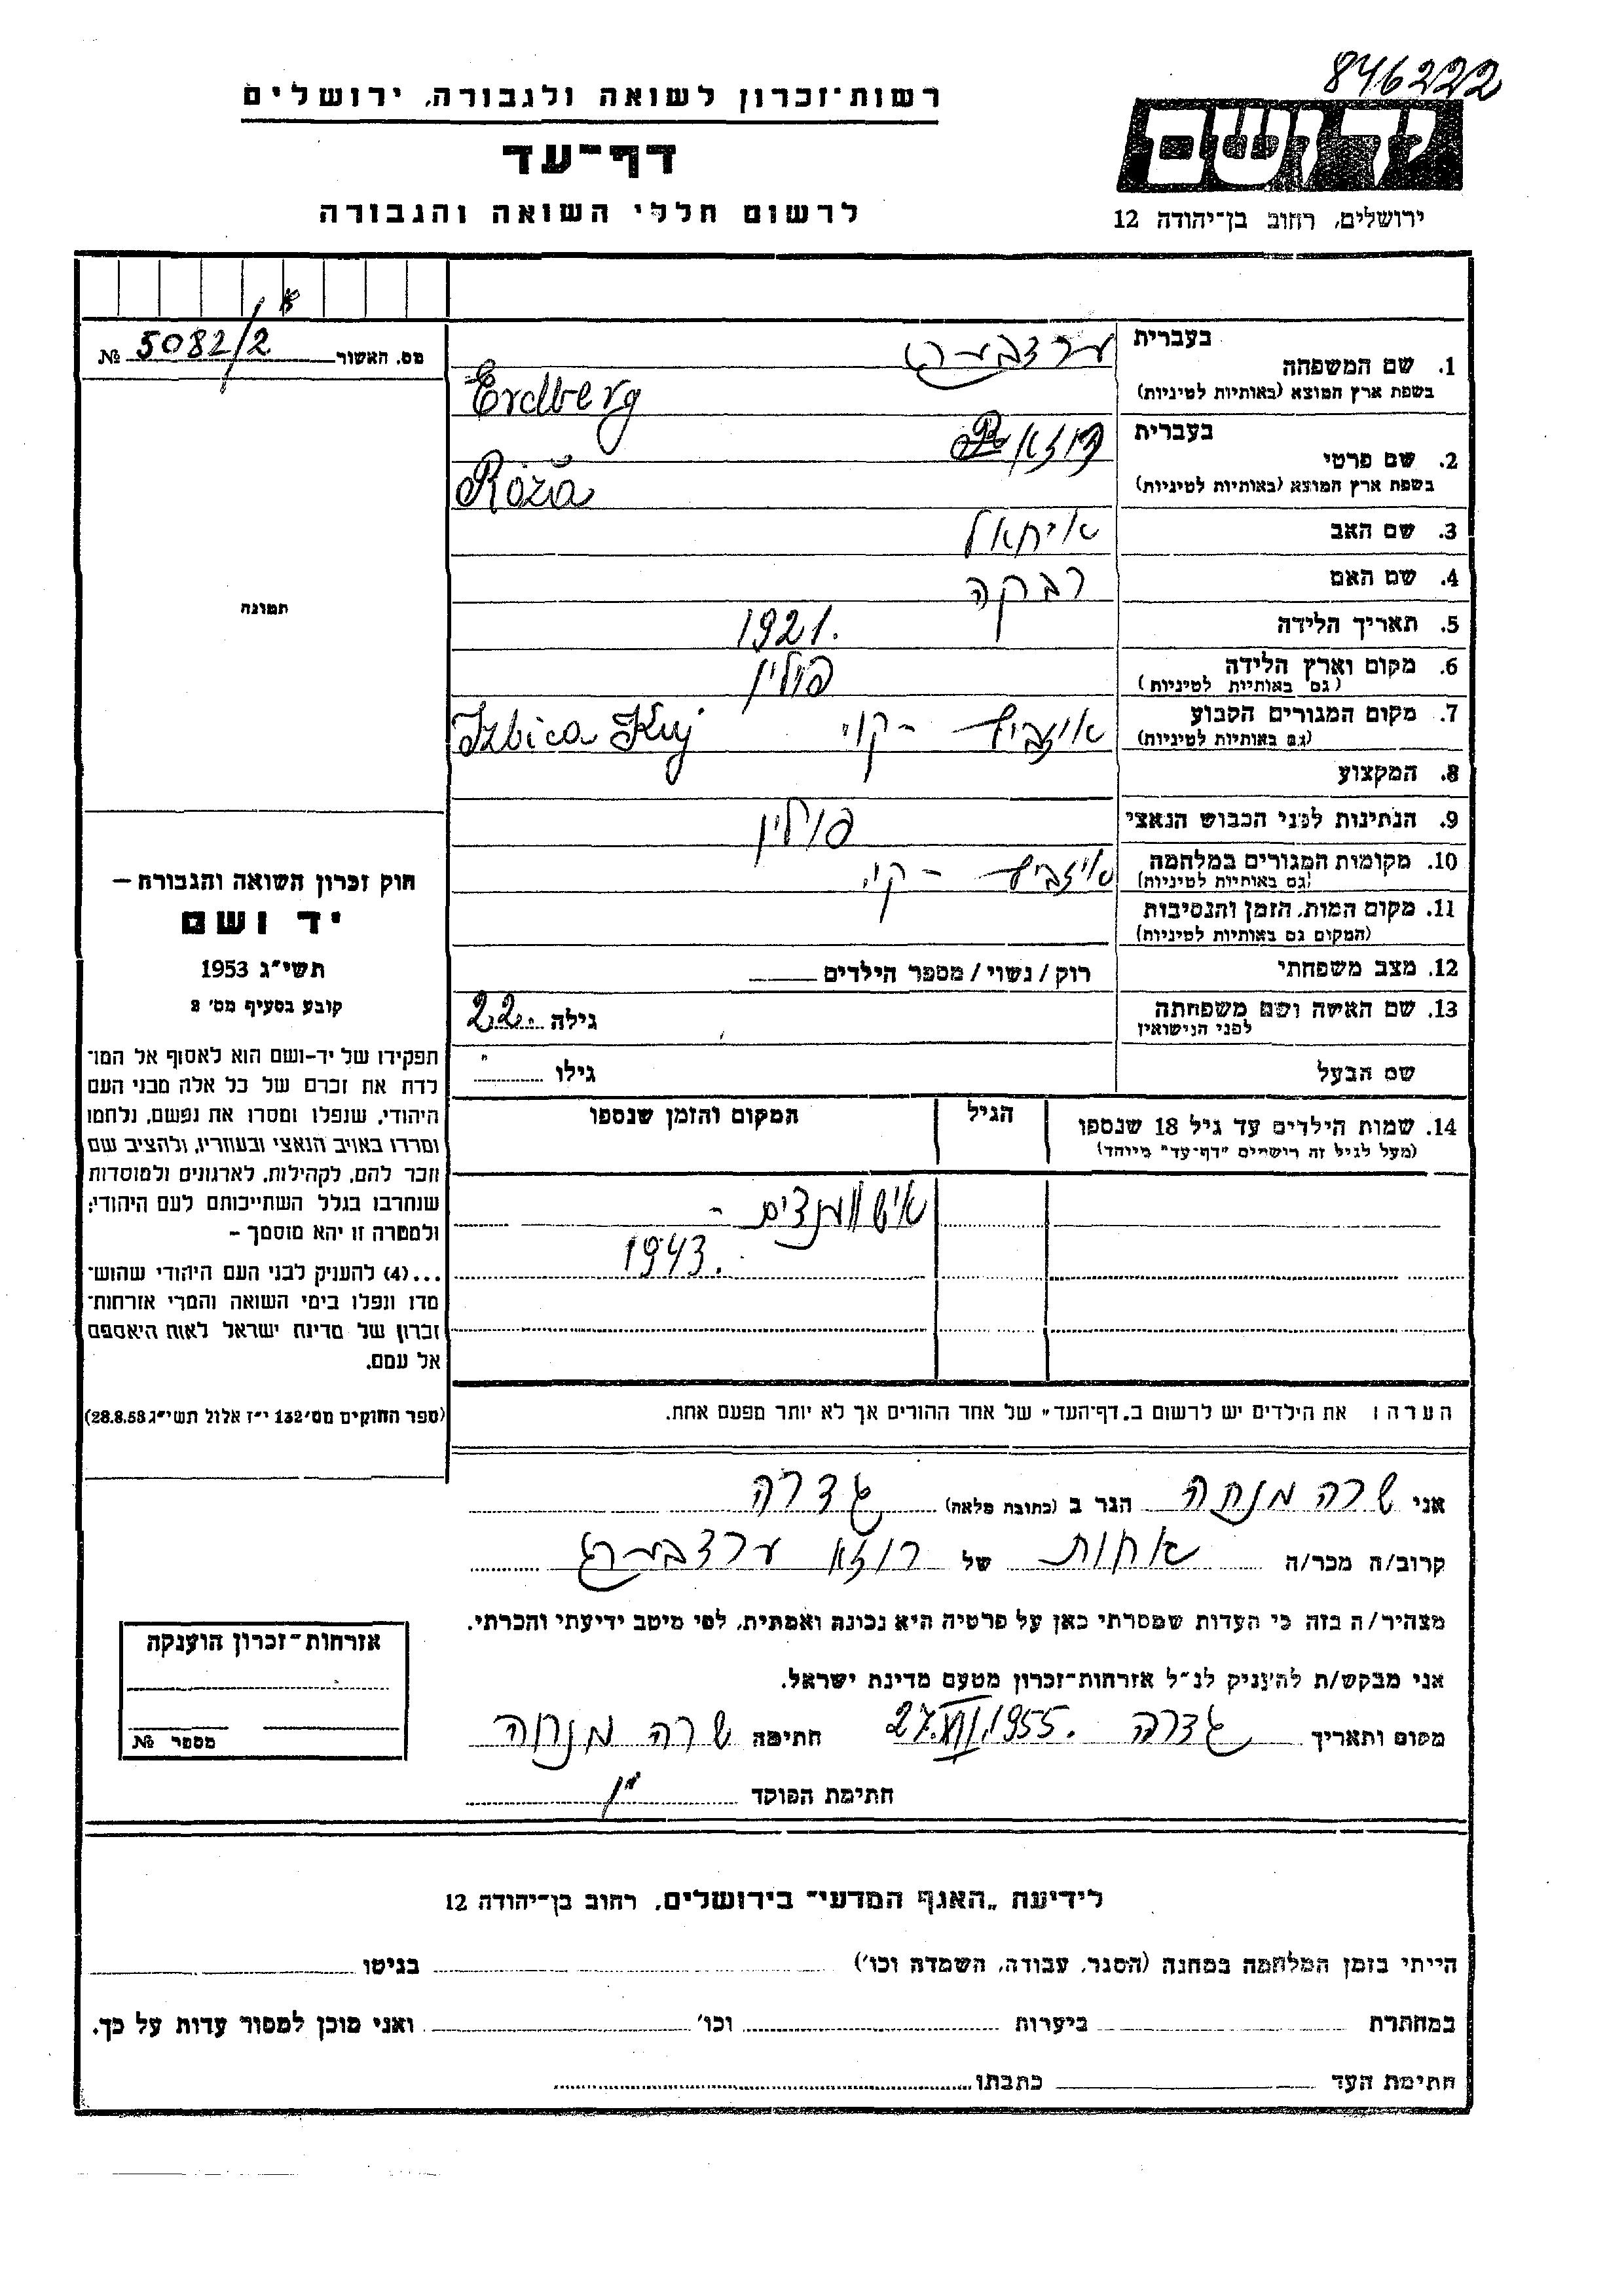 846222
יד ושם
ירושלים, רחוב בן־יהודה 12
רשות־זכרון לשואה ולגבורה, ירושלים
דף־עד
לרשום חללי השואה והגבורה
מס. האשור 5082/2 №
תמונה
חוק זכרון השואה והגבורה —
יד ושם
תשי״ג 1953
קובע בסעיף מס׳ 2
תפקידו של יד-ושם הוא לאסוף אל המו־
לדת את זכרם של כל אלה מבני העם
היהודי, שנפלו ומסרו את נפשם, נלחמו
ומרדו באויב הנאצי ובעוזריו, ולהציב שם
וזכר להם, לקהילות, לארגונים ולמוסדות
שנחרבו בגלל השתייכותם לעם היהודי;
ולמטרה זו יהא מוסמך –
...(4) להעניק לבני העם היהודי שהוש־
מדו ונפלו בימי השואה והמרי אזרחות־
זכרון של מדינת ישראל לאות היאספם
אל עמם.
(ספר החוקים מס׳ 132 י״ז אלול תשי״ג 28.8.53)
בעברית
1. שם המשפחה ערדברג
בשפת ארץ המוצא (באותיות לטיניות) Erdberg
בעברית
2. שם פרטי רוזא
בשפת ארץ המוצא (באותיות לטיניות) Róża
3. שם האב
4. שם האם רבקה
5. תאריך הלידה 1921.
6. מקום וארץ הלידה פולין
(גם באותיות לטיניות)
7. מקום המגורים הקבוע איזביצ - קוי Izbica Kuj
(גם באותיות לטיניות)
8. המקצוע
9. הנתינות לפני הכבוש הנאצי פולין
10. מקומות המגורים במלחמה איזביצ - קוי.
(גם באותיות לטיניות)
11. מקום המות, הזמן והנסיבות
(המקום גם באותיות לטיניות)
12. מצב משפחתי רוק / נשוי / מספר הילדים
13. שם האשה ושם משפחתה גילה 22
לפני הנישואין
שם הבעל גילו
14. שמות הילדים עד גיל 18 שנספו הגיל המקום והזמן שנספו
(מעל לגיל זה רושמים "דף-עד" מיוחד)
1943.
הערה: את הילדים יש לרשום ב„דף־העד״ של אחד ההורים אך לא יותר מפעם אחת.
אני שרה מנחה הגר ב (כתובת מלאה) גדרה
קרוב/ה מכר/ה אחות של רוזא ערדברג
מצהיר/ה בזה כי העדות שמסרתי כאן על פרטיה היא נכונה ואמתית, לפי מיטב ידיעתי והכרתי.
אני מבקש/ת להעניק לנ״ל אזרחות־זכרון מטעם מדינת ישראל.
מקום ותאריך גדרה 27.VII.1955. חתימה שרה מנוחה
חתימת הפוקד
אזרחות־זכרון הוענקה
מספר №
לידיעת „האגף המדעי״ בירושלים, רחוב בן־יהודה 12
הייתי בזמן המלחמה במחנה (הסגר, עבודה, השמדה וכו׳) בגיטו
במחתרת ביערות וכו׳ ואני מוכן למסור עדות על כך.
חתימת העד כתבתו